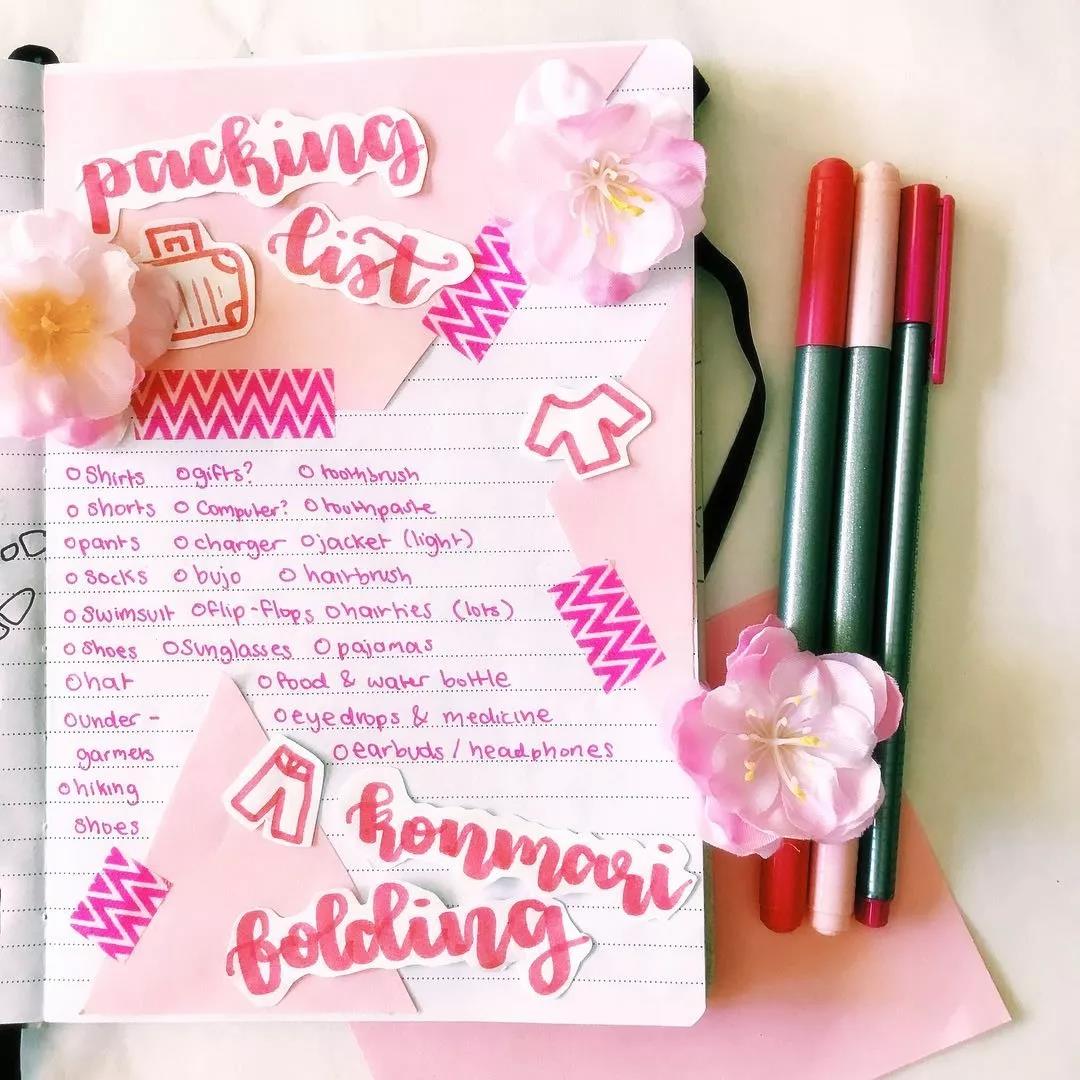 packing
list
o Shirts o gifts? o toothbrush
o shorts o Computer? o toothpaste
o pants o charger o jacket (light)
o socks o bujo o hairbrush
o Swimsuit o flip-flops o hairties (lots)
o Shoes o Sunglasses o pajamas
o hat o food & water bottle
o under- o eyedrops & medicine
garments o earbuds / headphones
o hiking
shoes
konmari
folding